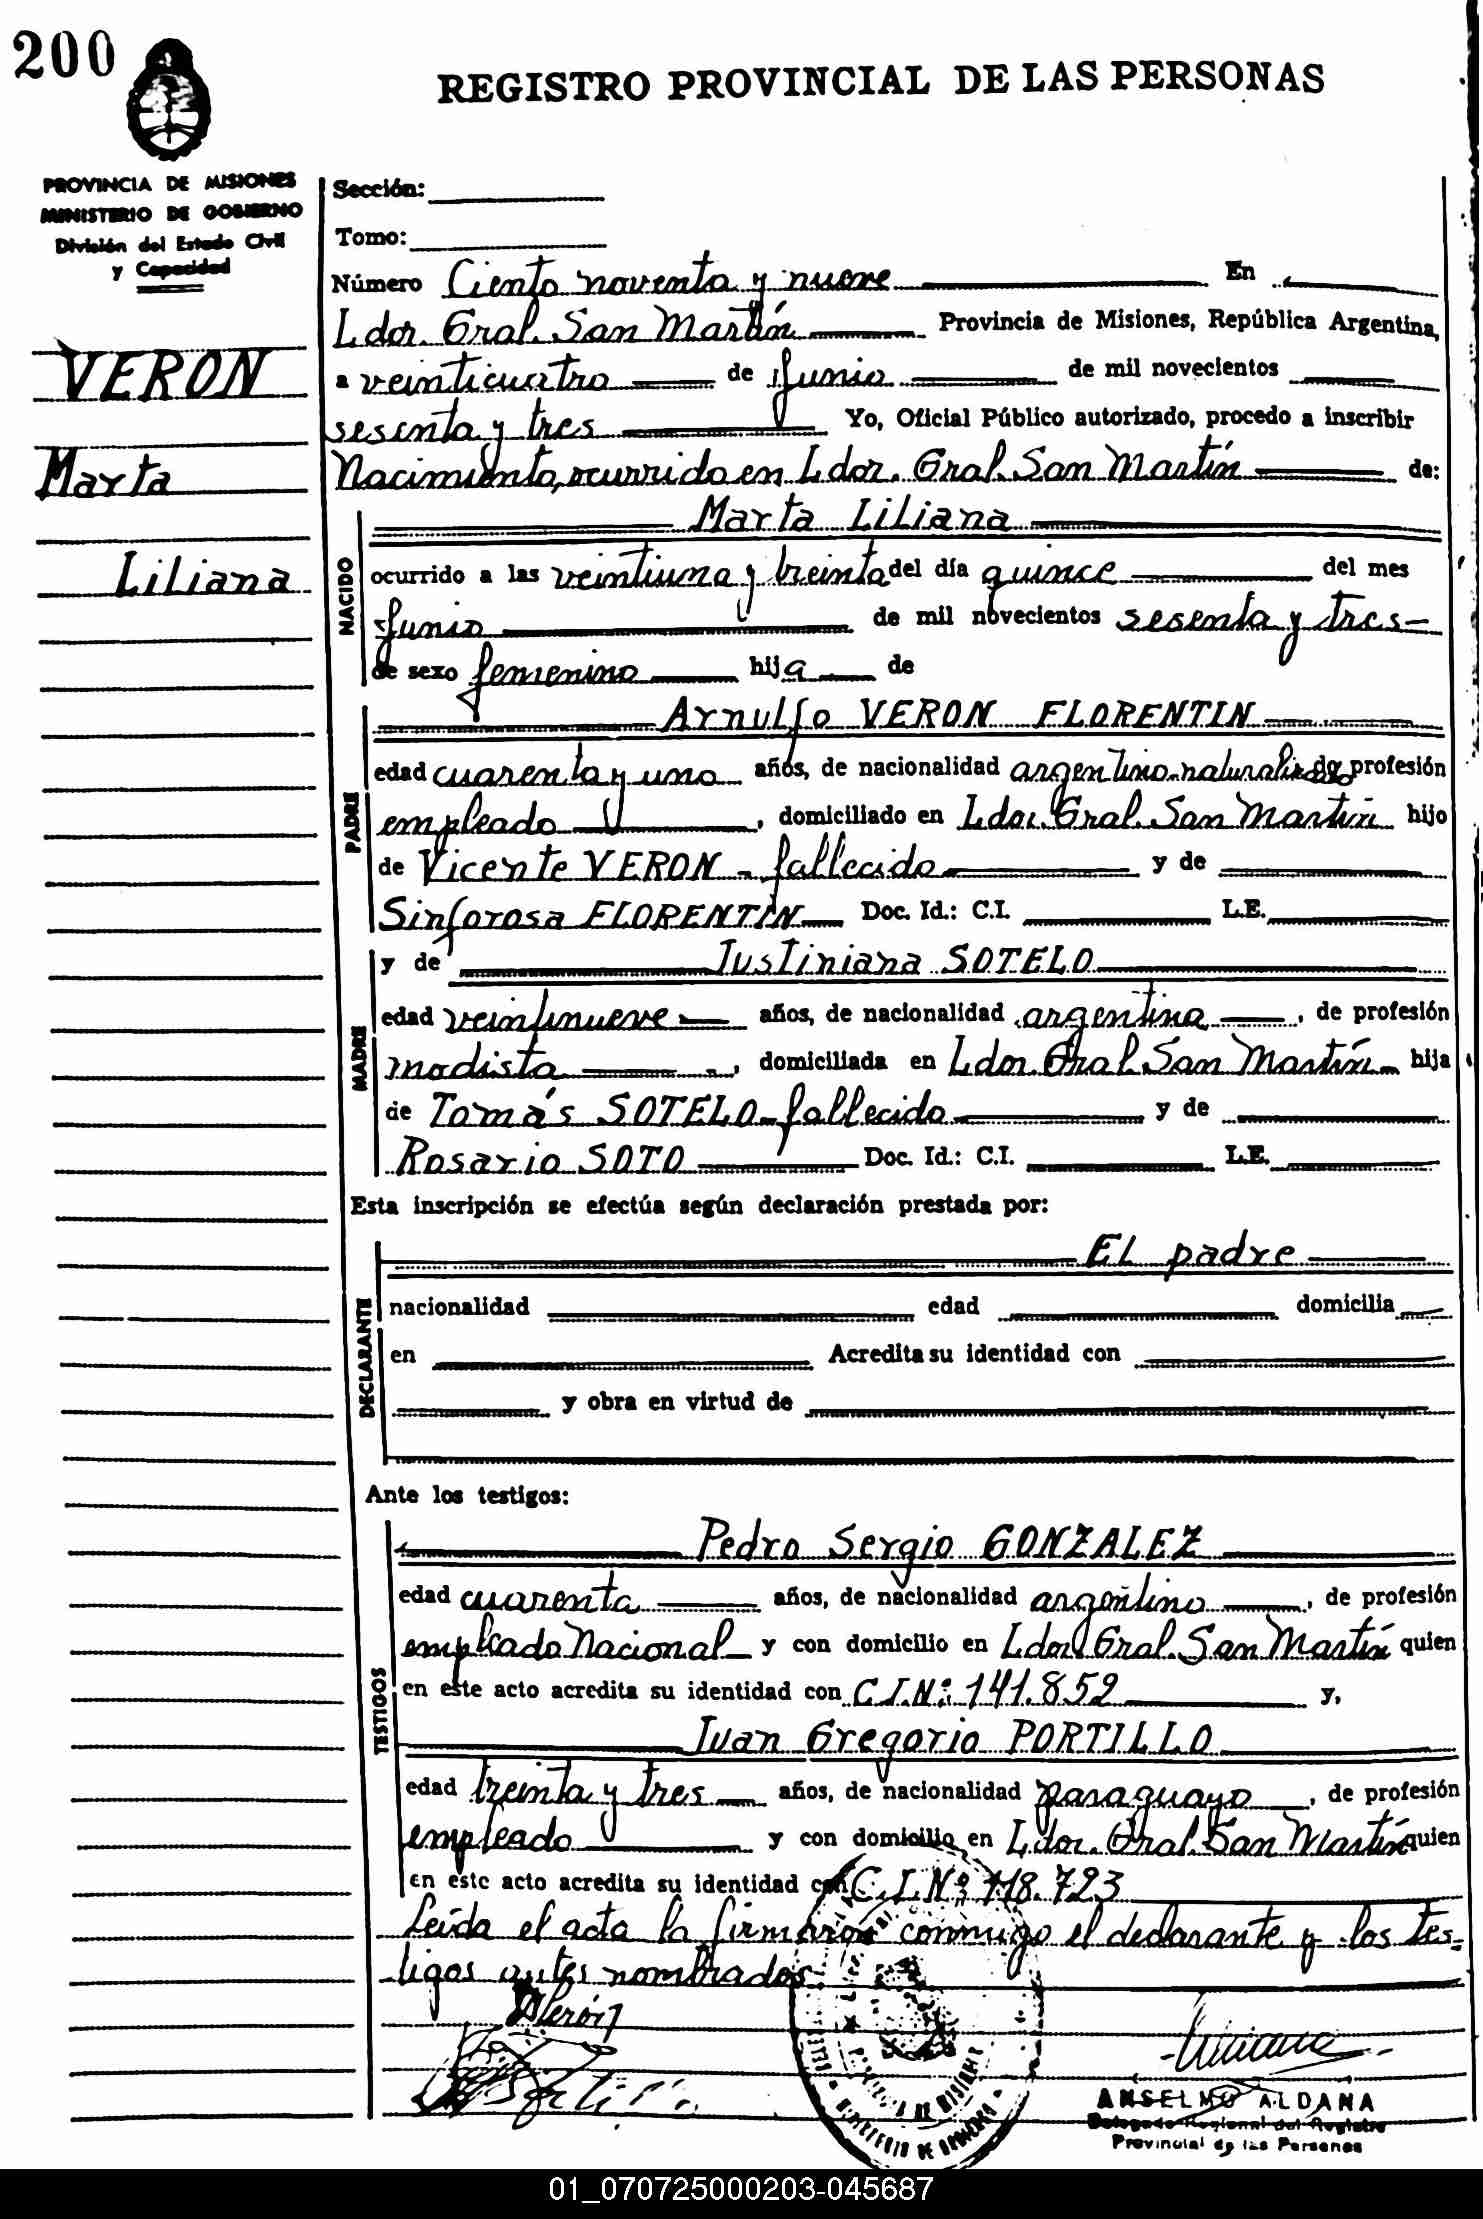 200
REGISTRO PROVINCIAL DE LAS PERSONAS
PROVINCIA DE MISIONES
MINISTERIO DE GOBIERNO
División del Estado Civil
y Capacidad
VERON
Marta
Liliana
Sección:
Tomo:
Número Ciento noventa y nueve En
Ldor. Gral. San Martín Provincia de Misiones, República Argentina,
a veinticuatro de Junio de mil novecientos
sesenta y tres Yo, Oficial Público autorizado, procedo a inscribir
Nacimiento, ocurrido en Ldor. Gral. San Martín de:
NACIDO
Marta Liliana
ocurrido a las veintiuna y treinta del día quince del mes
Junio de mil novecientos sesenta y tres-
de sexo femenino hija de
PADRE
Arnulfo VERON FLORENTIN
edad cuarenta y uno años, de nacionalidad argentino-naturalizado profesión
empleado, domiciliado en Ldor. Gral. San Martín hijo
de Vicente VERON - fallecido y de
Sinforosa FLORENTIN Doc. Id.: C.I. L.E.
MADRE
y de Justiniana SOTELO
edad veintinueve años, de nacionalidad argentina, de profesión
modista, domiciliada en Ldor. Gral. San Martín hija
de Tomás SOTELO-fallecido y de
Rosario SOTO Doc. Id.: C.I. L.E.
Esta inscripción se efectúa según declaración prestada por:
DECLARANTE
El padre
nacionalidad edad domicilia
en Acredita su identidad con
y obra en virtud de
Ante los testigos:
TESTIGOS
Pedro Sergio GONZALEZ
edad cuarenta años, de nacionalidad argentino, de profesión
empleado Nacional y con domicilio en Ldor. Gral. San Martín quien
en este acto acredita su identidad con C.I.Nº: 141.852 y,
Juan Gregorio PORTILLO
edad treinta y tres años, de nacionalidad paraguayo, de profesión
empleado y con domicilio en Ldor. Gral. San Martín quien
en este acto acredita su identidad con C.I.Nº: 118.723
Leida el acta la firmaron conmigo el declarante y los tes-
tigos antes nombrados
Verón
ANSELMO ALDANA
Delegado Regional del Registro
Provincial de las Personas
01_070725000203-045687